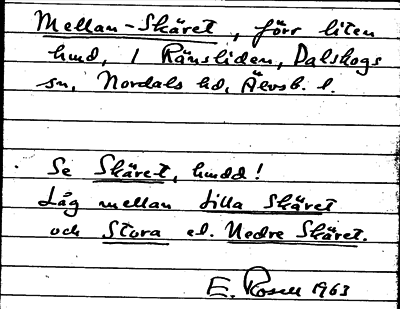 Mellan-Skäret, förr liten
hmd, i Ränsliden, Dalskogs
sn, Nordals hd, Älvsb. l.
Se Skäret, hmdd!
Låg mellan Lilla Skäret
och Stora el. Nedre Skäret.
E. Rosell 1963